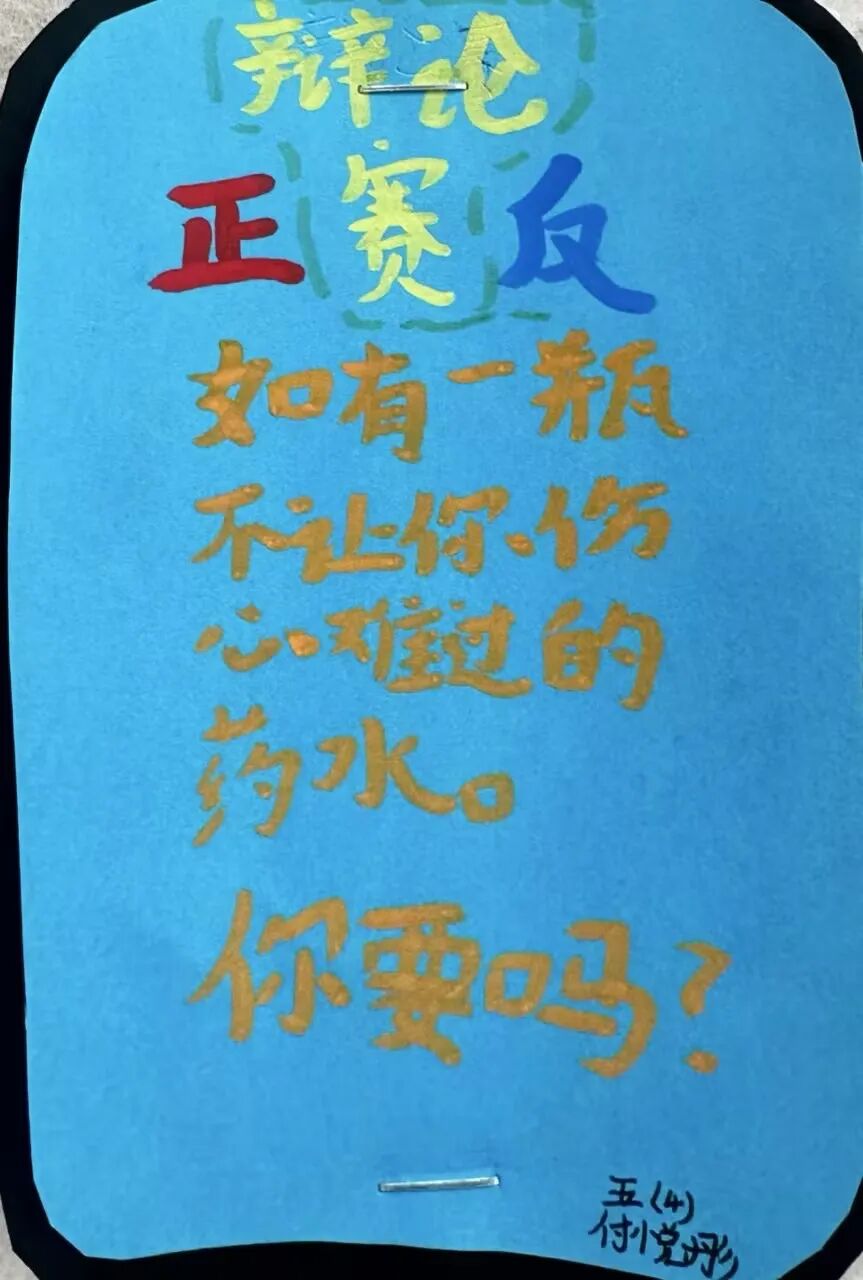 辩论
正赛反
如有一瓶
不让你伤
心难过的
药水。
你要吗?
五(4)
付悦彤